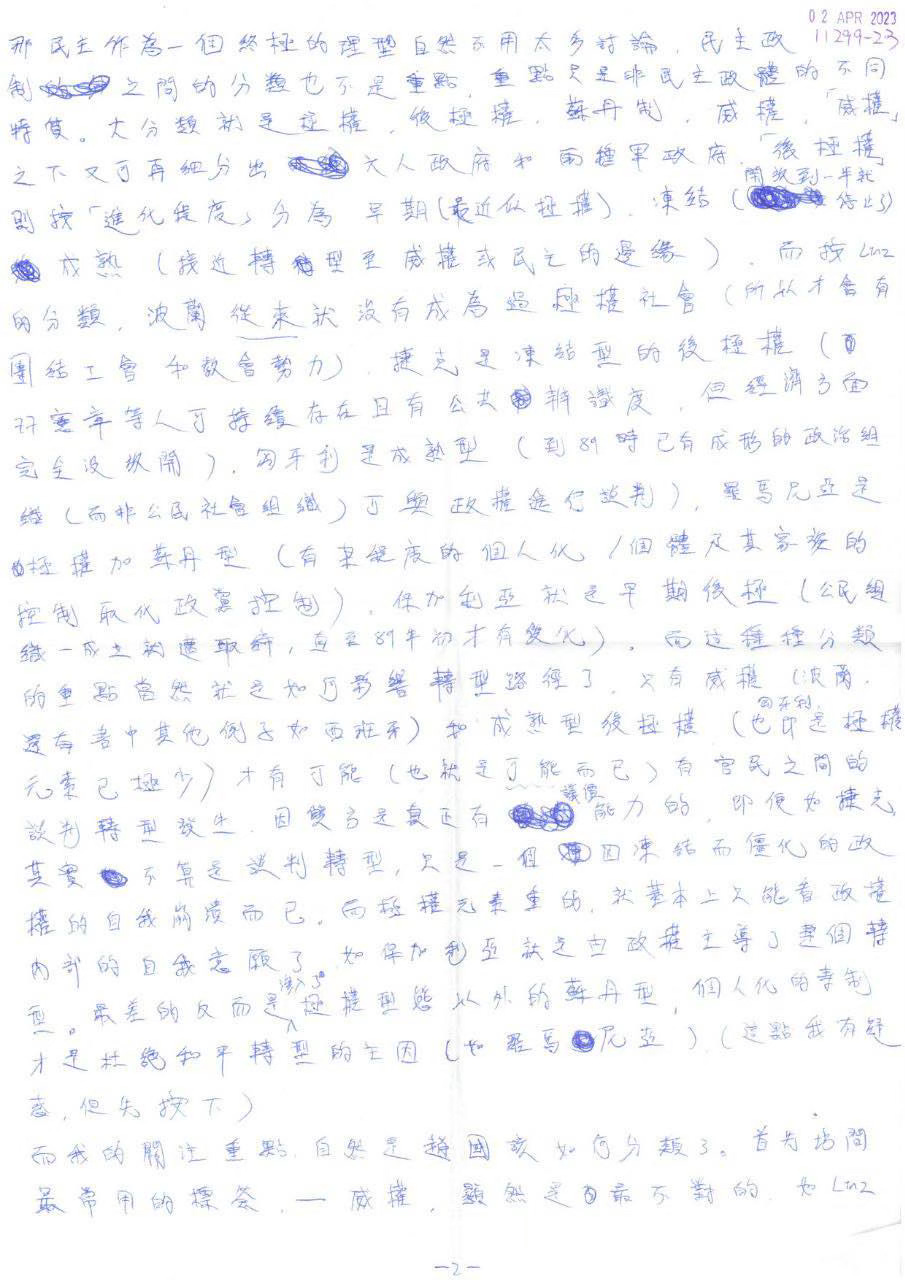 02 APR 2023
11299-23
那民主作為一個終極的理型自然不用太多討論，民主政
制之間的分類也不是重點，重點只是非民主政體的不同
特質。大分類就是極權，後極權，蘇丹制，威權，「威權」
之下又可再細分出文人政府和兩種軍政府，「後極權」
則按「進化程度」分為早期(最近似極權)，凍結(開放到一半就停止了)
成熟(接近轉型至威權或民主的邊緣)，而按Linz
的分類，波蘭從來就沒有成為過極權社會(所以才會有
團結工會和教會勢力)，捷克是凍結型的後極權(
77憲章等人可持續存在且有公共辨識度，但經濟方面
完全沒放開)，匈牙利是成熟型(到89時已有成形的政治組
織(而非公民社會組織)可與政權進行談判)，羅馬尼亞是
極權加蘇丹型(有某程度的個人化/個體及其家族的
控制取代政黨控制)，保加利亞就是早期後極(公民組
織一成立就遭取締，直至89年初才有變化)。而這種種分類
的重點當然就是如何影響轉型路徑了，只有威權(波蘭，
還有書中其他例子如西班牙)和成熟型後極權(匈牙利，也即是極權
元素已極少)才有可能(也就是可能而已)有官民之間的
談判轉型發生，因雙方是真正有議價能力的，即便如捷克，
其實不算是談判轉型，只是一個因凍結而僵化的政
權的自我崩潰而已，而極權元素重的，就基本上只能看政權
內部的自我意願了，如保加利亞就是由政權主導了整個轉
型。最差的反而是滲入了極權型態以外的蘇丹型，個人化的專制
才是杜絕和平轉型的主因(如羅馬尼亞)(這點我有疑
惑，但先按下)
而我的關注重點，自然是趙國該如何分類了。首先坊間
最常用的標簽，—威權，顯然是最不對的，如Linz
—2—